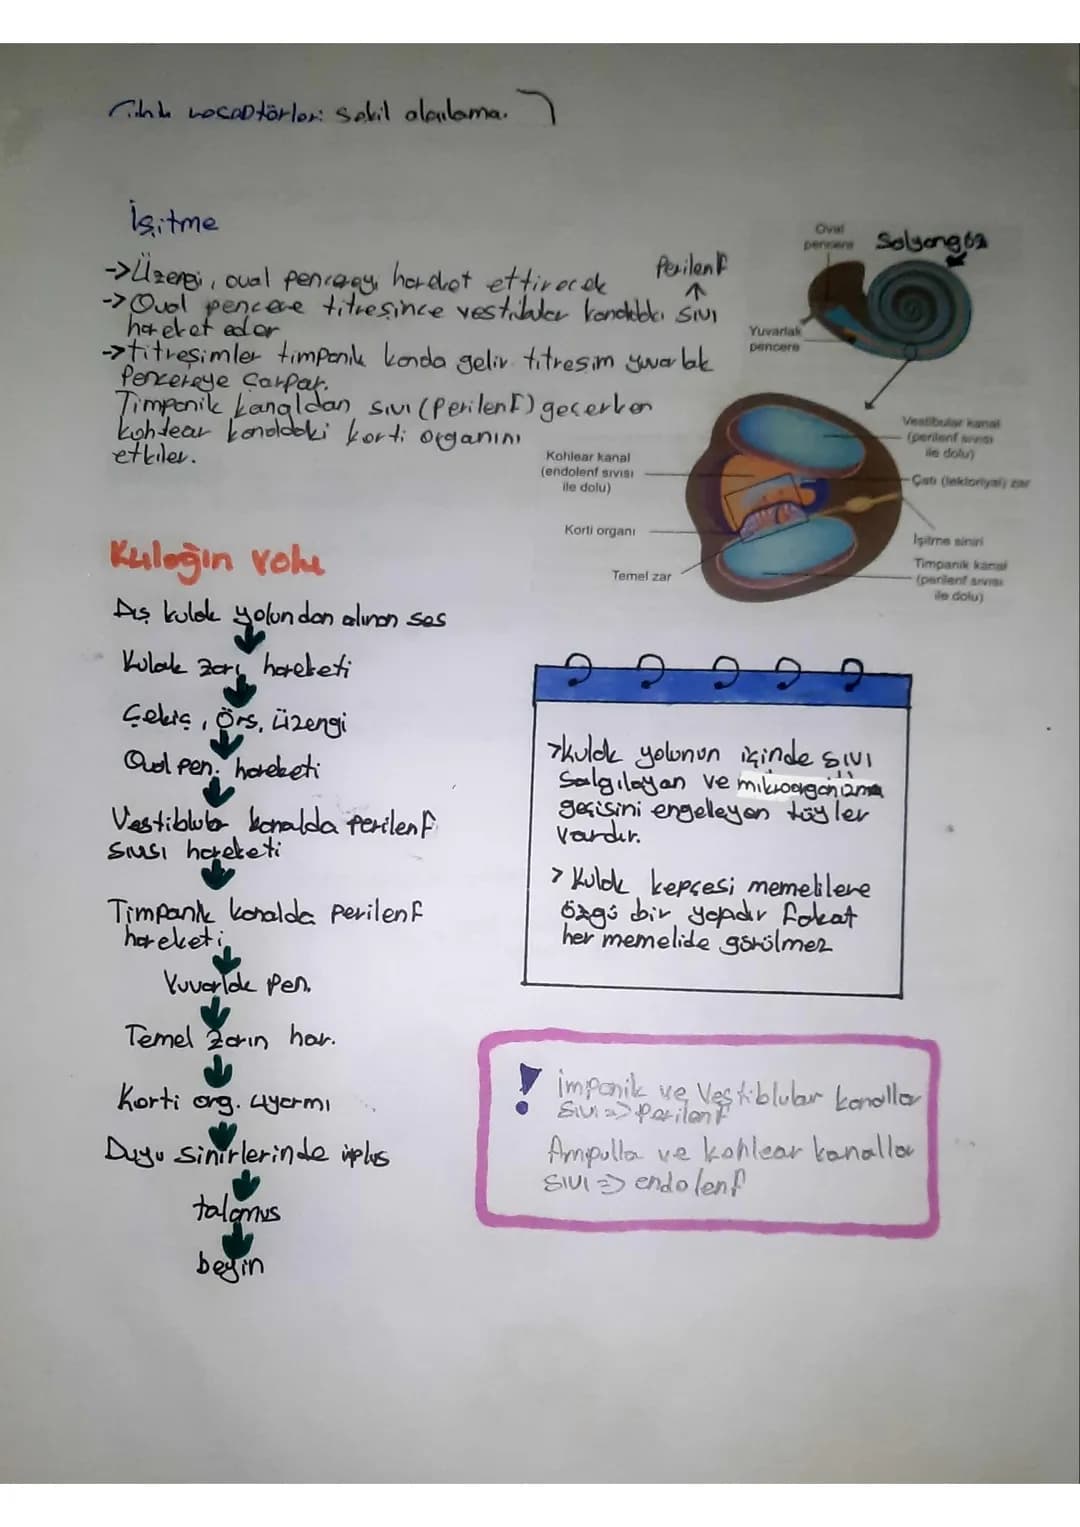 resaptörleri şekil algılama.
İşitme
->Üzengi, oval pencereyi hareket ettirecek
Perilenf
->Oval pencere titreşince vestibular kanaldaki sıvı
hareket eder
->titreşimler timpanik kanala gelir titreşim yuvarlak
Pencereye Çarpar.
Timpanik kanaldan sıvı (Perilenf) geçerken
kohlear kanaldaki korti organını
etkiler.
Oval
pencere
Salyangöz
Yuvarlak
pencere
Vestibular kanal
(perilenf sıvısı
ile dolu)
Kohlear kanal
(endolenf sıvısı
ile dolu)
Çatı (tektoriyal) zar
Korti organı
İşitme siniri
Temel zar
Timpanik kanal
(perilenf sıvısı
ile dolu)
Kulağın yolu
Dış kulak yolundan alınan ses
Kulak zarı hareketi
Çekiç, Örs, üzengi
Oval pen. hareketi
Vestiblular kanalda Perilenf
sıvısı hareketi
Timpanik kanalda perilenf
hareketi
Yuvarlak Pen.
Temel zarın har.
Korti org. uyarmı
Duyu sinirlerinde inplus
talamus
beyin
>kulak yolunun içinde sıvı
salgılayan ve mikroorganizma
geçişini engelleyen tüyler
vardır.
> Kulak kepçesi memelilere
özgü bir yapıdır fakat
her memelide görülmez
! impanik ve Vestiblular kanallar
sıvı => Perilenf
Ampulla ve kohlear kanallar
sıvı => endolenf